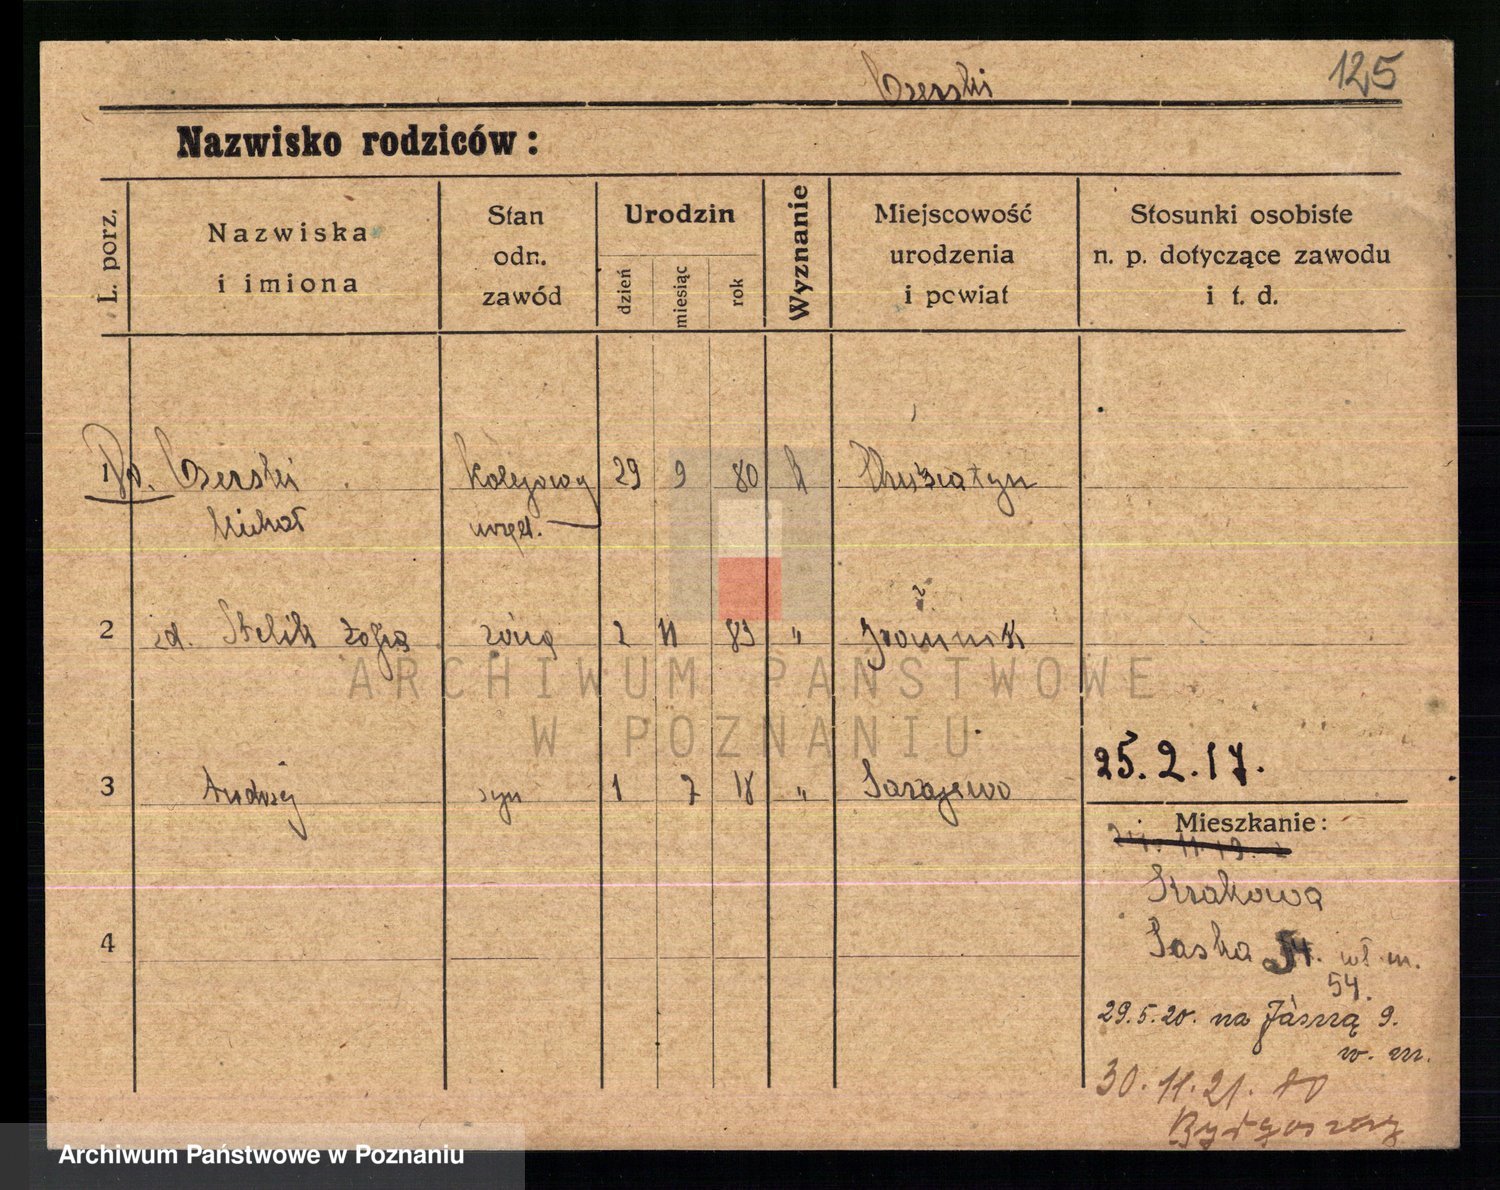 125
Czerski
Nazwisko rodziców:
L. porz.
Nazwiska
i imiona
Stan
odn.
zawód
Urodzin
dzień
miesiąc
rok
Wyznanie
Miejscowość
urodzenia
i powiat
Stosunki osobiste
n. p. dotyczące zawodu
i t. d.
1 Czerski kolejowy 29 9 80
Michał urzęd.
2 Zofja żona 2 11 83 "
3 Andrzej syn 1 7 18 " Sarajewo
25.2.17.
4
Mieszkanie:
Krakowa
54. wł. m.
54.
29.5.20. na Jasną 9.
w. m.
30.11.21. do
Bydgoszczy
ARCHIWUM PAŃSTWOWE
W POZNANIU
Archiwum Państwowe w Poznaniu